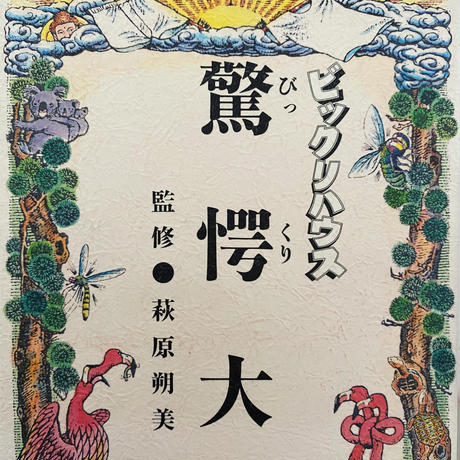 ビックリハウス
驚愕大
びっくり
監修●萩原朔美